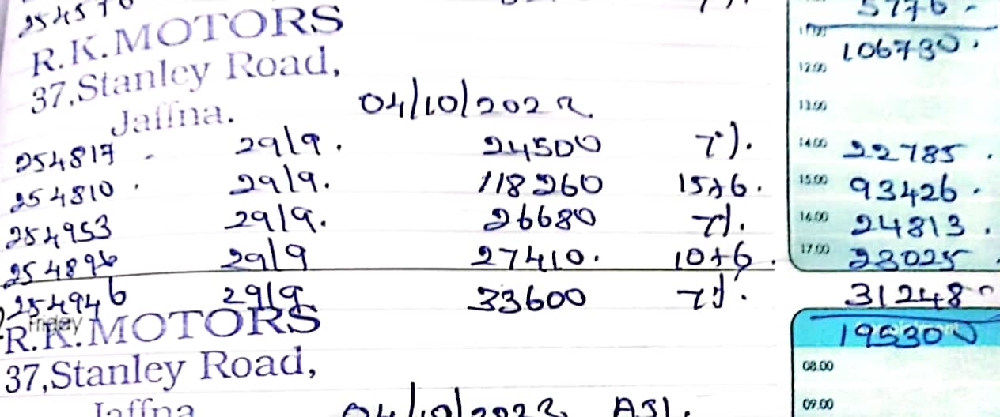 25457
R.K.MOTORS 5776 -
37,Stanley Road, 106730.
12.00
Jaffna. 04/10/2022 13.00
254817 - 29/9. 24500 7%. 14.00 22785.
254810. 29/9. 118260 15+6. 15.00 93426.
254953 29/9. 26680 7%. 16.00 24813.
254896 29/9 27410. 10+6. 17.00 23025
254946 29/9 33600 7%. 31248-
Friday
R.K.MOTORS 195300
37,Stanley Road, 08.00
Jaffna 04/10/2022 ASI. 09.00